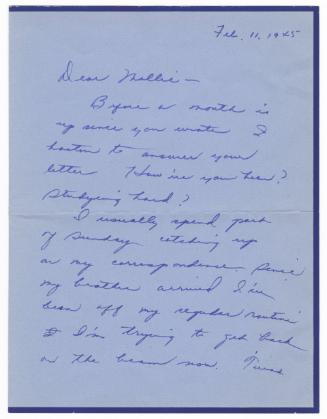 Feb. 11, 1945
Dear Mollie –
Before a month is
up since you wrote I
hasten to answer your
letter. How've you been?
Studying hard?
I usually spend part
of Sunday catching up
on my correspondence. Since
my brother arrived I've
been off my regular routine
& I'm trying to get back
on the beam now. 'Twas